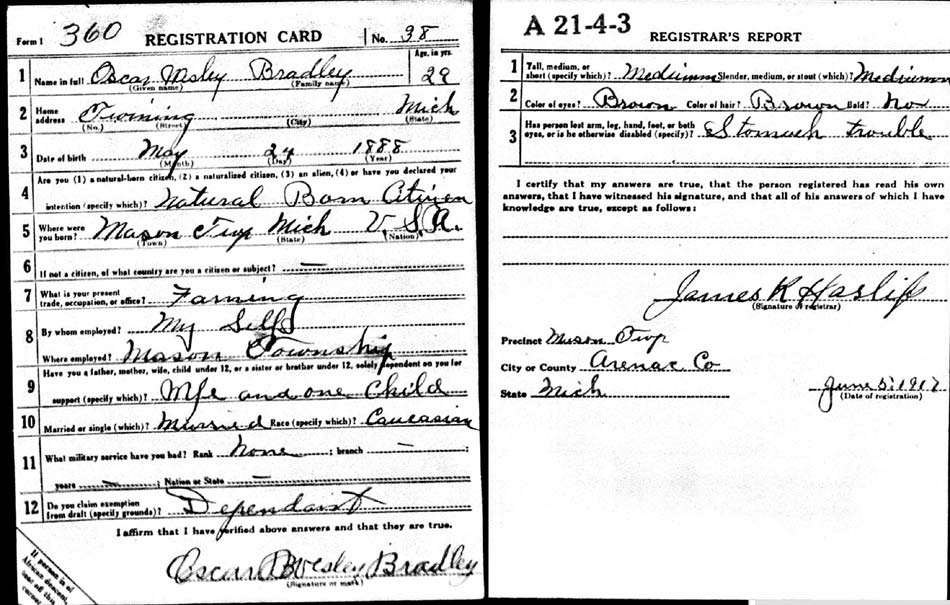 Form 1 360 REGISTRATION CARD No. 38
1 Name in full Oscar Wsley Bradley Age, in yrs. 29
(Given name) (Family name)
2 Home address Twining Mich
(No.) (Street) (City) (State)
3 Date of birth May 24 1888
(Month) (Day) (Year)
4 Are you (1) a natural-born citizen, (2) a naturalized citizen, (3) an alien, (4) or have you declared your
intention (specify which)? Natural Born Citizen
5 Where were you born? Mason Twp Mich U.S.A.
(Town) (State) (Nation)
6 If not a citizen, of what country are you a citizen or subject? —
7 What is your present trade, occupation, or office? Farming
8 By whom employed? My Self
Where employed? Mason Township
9 Have you a father, mother, wife, child under 12, or a sister or brother under 12, solely dependent on you for
support (specify which)? Wife and one Child
10 Married or single (which)? Married Race (specify which)? Caucasian
11 What military service have you had? Rank None ; branch — ;
years — ; Nation or State —
12 Do you claim exemption from draft (specify grounds)? Dependant
I affirm that I have verified above answers and that they are true.
Oscar Wesley Bradley
(Signature or mark)
If person is of
African descent,
corner
A 21-4-3 REGISTRAR'S REPORT
1 Tall, medium, or short (specify which)? Medium Slender, medium, or stout (which)? Medium
2 Color of eyes? Brown Color of hair? Brown Bald? No
3 Has person lost arm, leg, hand, foot, or both eyes, or is he otherwise disabled (specify)? Stomach trouble
I certify that my answers are true, that the person registered has read his own
answers, that I have witnessed his signature, and that all of his answers of which I have
knowledge are true, except as follows:
James R Haslip
(Signature of registrar)
Precinct Mason Twp
City or County Arenac Co
State Mich June 5, 1917
(Date of registration)